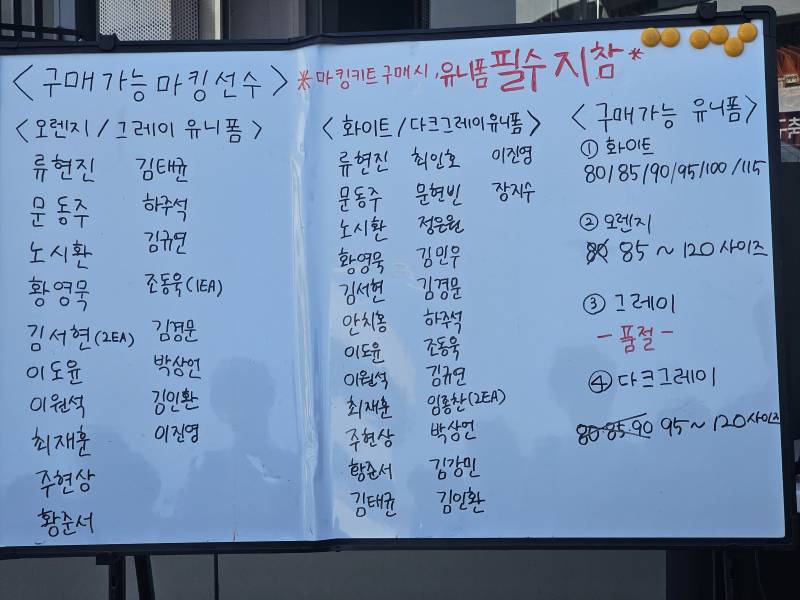 <구매가능 마킹선수>
*마킹키트 구매시, 유니폼 필수 지참*
<오렌지/그레이 유니폼>
류현진 김태균
문동주 하주석
노시환 김규연
황영묵 조동욱(1EA)
김서현(2EA) 김경문
이도윤 박상언
이원석 김인환
최재훈 이진영
주현상
황준서
<화이트/다크그레이 유니폼>
류현진 최인호 이진영
문동주 문현빈 장지수
노시환 정은원
황영묵 김민우
김서현 김경문
안치홍 하주석
이도윤 조동욱
이원석 김규연
최재훈 임종찬(2EA)
주현상 박상언
황준서 김강민
김태균 김인환
<구매가능 유니폼>
① 화이트
80/85/90/95/100/115
② 오렌지
80 85 ~ 120 사이즈
③ 그레이
- 품절 -
④ 다크그레이
80 85 90 95 ~ 120 사이즈